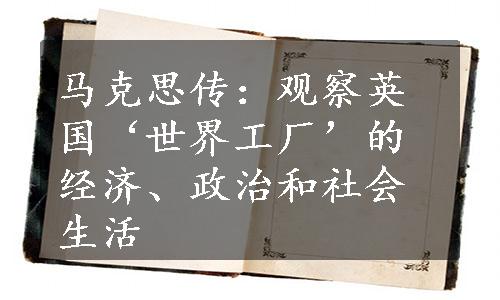 马克思传：观察英
国‘世界工厂’的
经济、政治和社会
生活